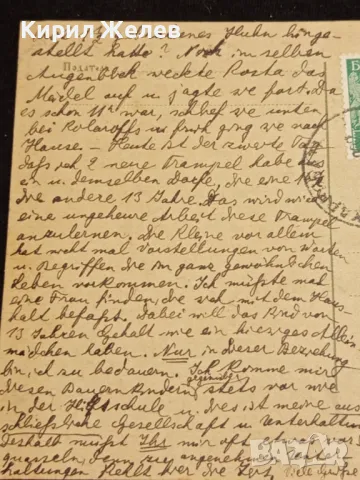 Кирил Желев
eines Huhn hinge-
stellt hatte? Noch im selben
Податель
Augenblick weckte Rosta das
Mädel auf u jagte sie fort. Da
es schon 11h war, schlief sie unten
bei Kolaroffs u früh ging sie nach
Hause. – Heute ist der zweite Tag
daß ich 2 neue Trampel habe aus
ein u. demselben Dorfe. Die eine 16,
die andere 13 Jahre. Das wird wieder
eine ungeheure Arbeit diese Trampel
anzulernen. Die Kleine vor allem
hat nicht mal Vorstellungen von Worten
u. Begriffen die im ganz gewöhnlichen
Leben vorkommen. Ich müßte mal
eine Frau finden, die sich mit dem Haus-
halt befaßt. Dabei will das Kind von
13 Jahren Gehalt wie ein hiesiges Allein
mädchen haben. Nur in dieser Beziehung
bin ich zu bedauern. Ich komme mir
diesen Bauernkindern gegenüber stets vor wie
in der Hilfsschule u. dies ist meine aus-
schließliche Gesellschaft u Unterhaltung
deshalb müßt Ihr mir oft etwas vor-
quasseln, denn zu angenehmen Unter-
haltungen fehlt hier die Zeit. Viele Grüße
bazar.bg